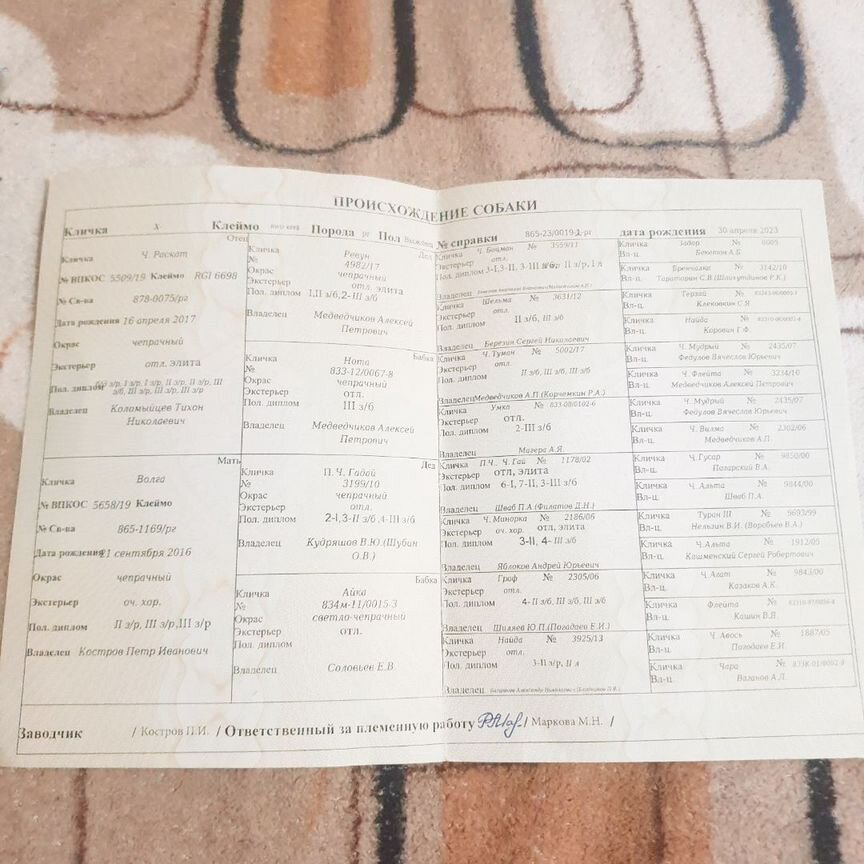 ПРОИСХОЖДЕНИЕ СОБАКИ
Кличка х Клеймо Порода рг Пол № справки 865-23/0019-1-рг дата рождения 30 апреля 2023
Отец
Кличка Ч. Раскат
№ ВПКОС 5509/19 Клеймо RGI 6698
№ Св-ва 878-0075/рг
Дата рождения 16 апреля 2017
Окрас чепрачный
Экстерьер отл. элита
Пол. диплом I з/р, II з/р, II з/р, III
з/б, III з/р, III з/р, III з/р
Владелец Коломыйцев Тихон
Николаевич
Мать
Кличка Волга
№ ВПКОС 5658/19 Клеймо
№ Св-ва 865-1169/рг
Дата рождения 21 сентября 2016
Окрас чепрачный
Экстерьер оч. хор.
Пол. диплом II з/р, III з/р,III з/р
Владелец Костров Петр Иванович
Дед
Кличка Ревун
№ 4982/17
Окрас чепрачный
Экстерьер отл. элита
Пол. диплом I,II з/б,2-III з/б
Владелец Медведчиков Алексей
Петрович
Бабка
Кличка Нота
№ 833-12/0067-8
Окрас чепрачный
Экстерьер отл.
Пол. диплом III з/б
Владелец Медведчиков Алексей
Петрович
Дед
Кличка П. Ч. Гадай
№ 3199/10
Окрас чепрачный
Экстерьер отл.
Пол. диплом 2-I,3-II з/б ,4-III з/б
Владелец Кудряшов В.Ю.(Шубин
О.В.)
Бабка
Кличка Айка
№ 834м-11/0015-3
Окрас светло-чепрачный
Экстерьер отл.
Пол. диплом
Владелец Соловьев Е.В.
Кличка Ч. Боцман № 3959/11
Экстерьер отл.
Пол. диплом 3-I,3-II, 3-III
Владелец
Кличка Шельма № 3631/12
Экстерьер отл.
Пол. диплом II з/б, III з/б
Владелец Березин Сергей Николаевич
Кличка Ч. Туман № 5002/17
Экстерьер отл.
Пол. диплом II з/б, III з/б, III з/б
Владелец Медведчиков А.П.(Корчемкин Р.А.)
Кличка Умка № 833-08/0102-6
Экстерьер отл.
Пол. диплом 2-III з/б
Владелец Магера А.Я.
Кличка П.Ч. Ч. Гай № 1178/02
Экстерьер отл, элита
Пол. диплом 6-I, 7-II, 3-III з/б
Владелец Шваб П.А (Филатов Д.Н.)
Кличка Ч. Манорка № 2186/06
Экстерьер оч. хор. отл, элита
Пол. диплом 3-II, 4- III з/б
Владелец Яблоков Андрей Юрьевич
Кличка Гроф № 2305/06
Экстерьер отл.
Пол. диплом 4-II з/б, III з/б, III з/б
Владелец Шиляев Ю.П.(Погодаев Е.И.)
Кличка Найда № 3925/13
Экстерьер отл.
Пол. диплом 3-II з/р, II л
Владелец
Кличка Задор № 0005
Вл-ц. Бекетов А.Б
Кличка Бренчалка № 3142/10
Вл-ц. Тараторин С.В (Шаихутдинов Р.К.)
Кличка Терзай №
Вл-ц. Клековкин С.Я
Кличка Найда №
Вл-ц. Коровин Г.Ф.
Кличка Ч. Мудрый № 2435/07
Вл-ц. Федулов Вячеслав Юрьевич
Кличка Ч. Флейта № 3234/10
Вл-ц. Медведчиков Алексей Петрович
Кличка Ч. Мудрый № 2435/07
Вл-ц. Федулов Вячеслав Юрьевич
Кличка Ч. Вилма № 2302/06
Вл-ц. Медведчиков А.П.
Кличка Ч.Гусар № 9850/00
Вл-ц. Пагарский В.А.
Кличка Ч. Альта № 9844/00
Вл-ц. Шваб П.А.
Кличка Туран III № 9693/99
Вл-ц. Нельзин В.И. (Воробьев В.А.)
Кличка Ч.Альта № 1912/05
Вл-ц. Кашменский Сергей Робертович
Кличка Ч. Агат № 9843/00
Вл-ц. Казаков А.К.
Кличка Флейта №
Вл-ц. Кашин В.Я.
Кличка Ч. Авось № 1887/05
Вл-ц. Погодаев Е.И.
Кличка Чара № 833К-01/0002-8
Вл-ц. Ваганов А.Л.
Заводчик / Костров П.И. / Ответственный за племенную работу / Маркова М.Н. /